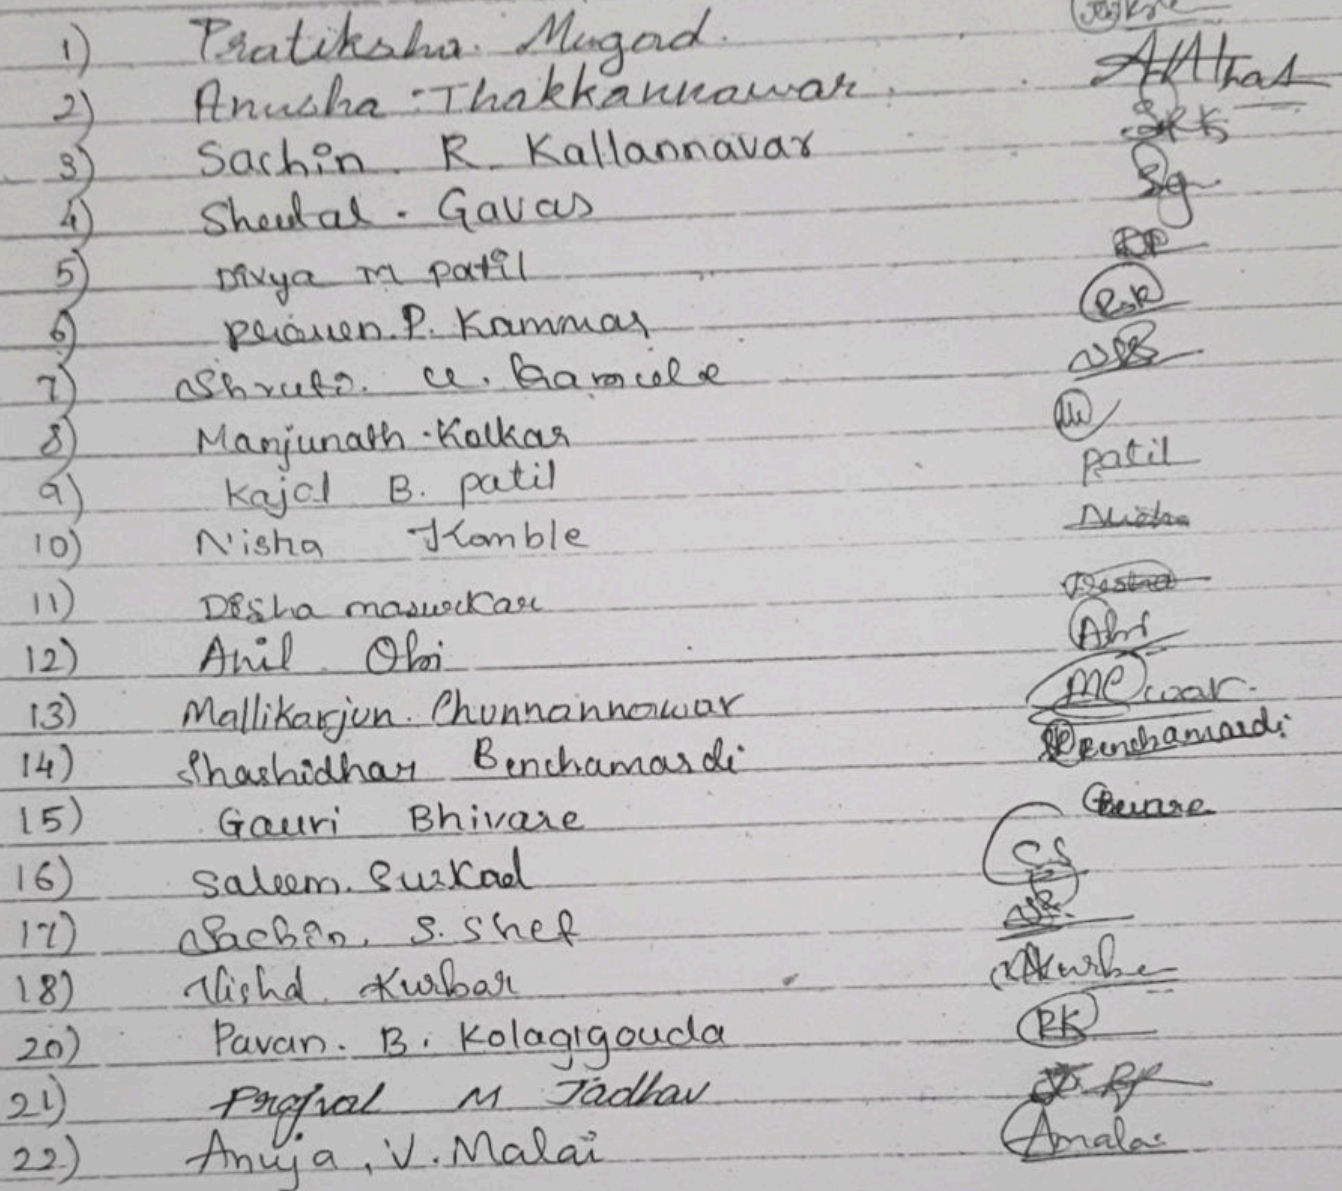 1) Pratiksha. Mugad.
2) Anusha Thakkannawar. AAThak
3) Sachin. R. Kallannavar SRK
4) Sheetal. Gavas Sg
5) Divya m patil DP
6) P. Kammar
7) Shruti.
8) Manjunath. Kolkar
9) Kajal B. patil patil
10) Nisha Kamble Nisha
11) Disha masurekar Disha
12) Anil Obi
13) Mallikarjun. Chunnannawar
14) Shashidhar Benchamardi Benchamardi
15) Gauri Bhivare
16) Saleem. Surkad
17) Sachin. S. Shet
18) Kurbar
20) Pavan. B. Kolagigouda PK
21) Prajval M Jadhav
22) Anuja. V. Malai Amalai